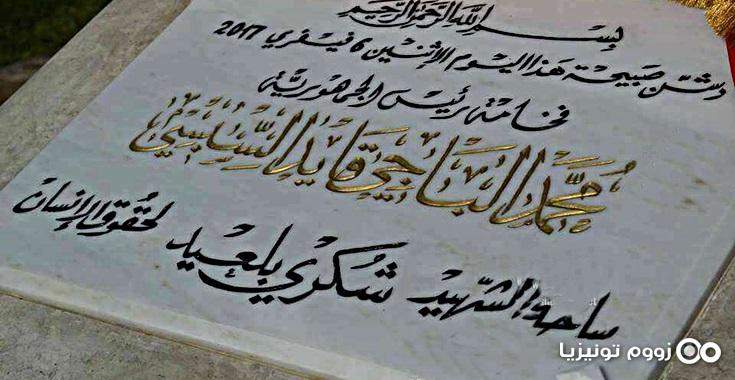 بسم الله الرحمن الرحيم
دشّن صبيحة هذا اليوم الإثنين 6 فيفري 2017
فخامة رئيس الجمهوريّة
محمّد الباجي قايد السّبسي
ساحة الشّهيد شكري بلعيد لحقوق الإنسان
زووم تونيزيا